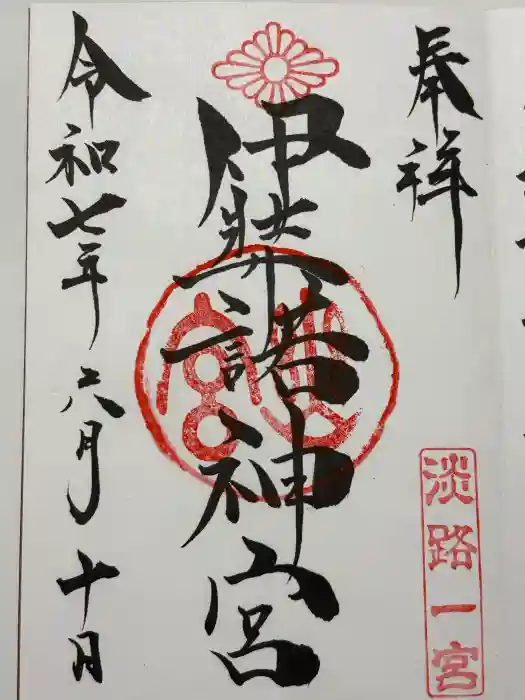 奉祥
淡路一宮
伊弉諾神宮
令和七年 六月 十日